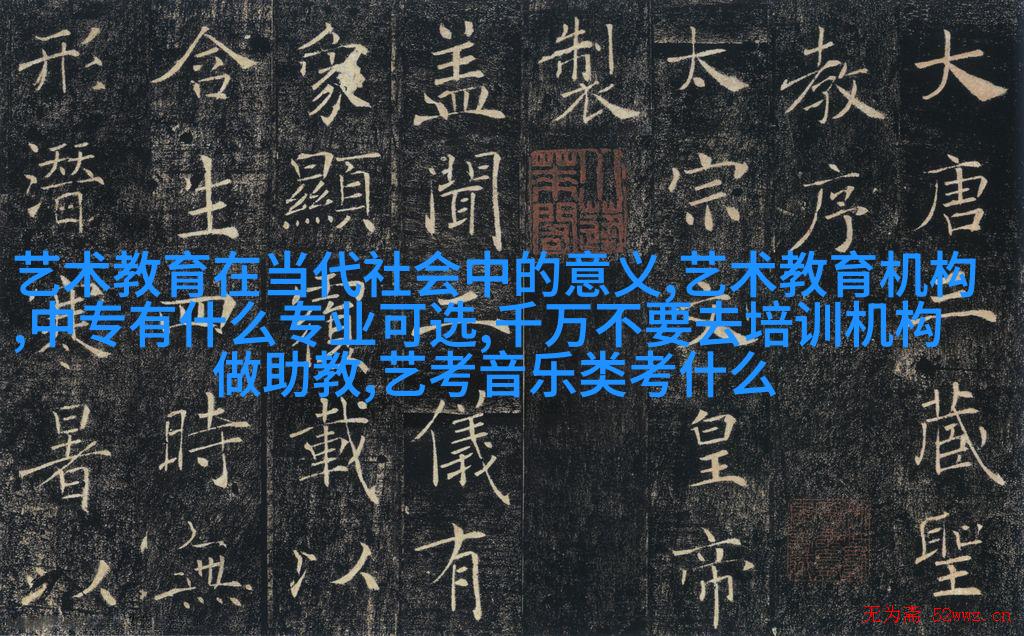 大唐三藏聖
教序
太宗皇帝
製
盖聞二儀有
象顯載以
含生四時無
形潛寒暑以
艺术教育在当代社会中的意义,艺术教育机构
,中专有什么专业可选,千万不要去培训机构
做助教,艺考音乐类考什么
无为斋 52wwz.cn